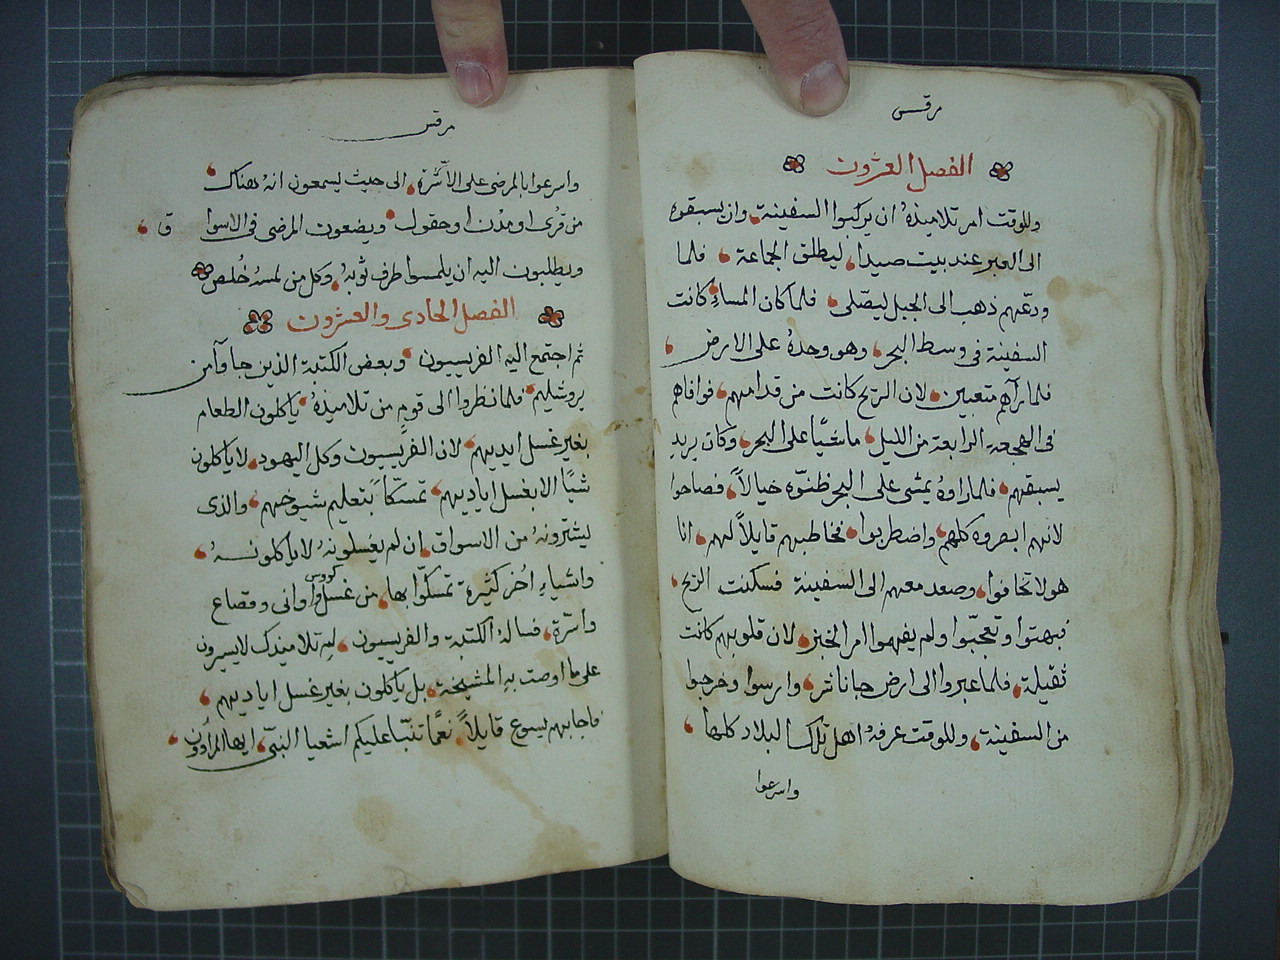 مرقس
الفصل العشرون
وللوقت امر تلاميذهُ ان يركبوا السفينة وان يسبقوه
الى العبر عند بيت صيدا ليطلق الجماعة فلما
ودّعهم ذهب الى الجبل ليصّلى فلما كان المساءِ كانت
السفينة فى وسط البحر وهو وحدهُ على الارض
فلما رآهم متعبين لان الريح كانت من قدامهم فوافاهم
فى الهجعة الرابعة من الليل ماشيًا على البحر وكان يريد
يسبقهم فلما راوهُ يمشى على البحر ظنّوه خيالاً فصاحوا
لانهم ابصروه كلهم واضطربوا فخاطبهم قايلاً لهم انا
هو لا تخافوا وصعد معهم الى السفينة فسكنت الريح
فبهتوا وتعجبّوا ولم يفهموا امر الخبز لان قلوبهم كانت
ثقيلة فلما عبروا الى ارض جاناشر وارسوا وخرجوا
من السفينة وللوقت عرفهُ اهل تلك البلاد كلها
واسرعوا
مرقس
واسرعوا بالمرضى على الاسّرة الى حيث يسمعون انهُ هناك
من قرًى او مدن او حقول ويضعون المرضى فى الاسوا ق
ويطلبون اليه ان يلمسوا طرف ثوبهُ وكل من لمسهُ خُلص
الفصل الحادى والعشرون
ثم اجتمع اليه الفريسيون وبعض الكتبة الذين جاوآ من
يروشليم فلما نظروا الى قومٍ من تلاميذهُ ياكلون الطعام
بغير غسل ايديهم لان الفريسيون وكل اليهود لا ياكلون
شيًا الا بغسل اياديهم تمسّكًا بتعليم شيوخهم والذى
يشترونهُ من الاسواق ان لم يغسلونهُ لا ياكلونهُ
واشياءِ اُخر كثيرة تمسكّوا بها من غسل كووس واوانى وقصاع
واسّرة فسالهُ الكتبة والفريسيون لم تلاميذك لا يسيرون
على ما اوصت بهِ المشيخة بل ياكلون بغير غسل اياديهم
فاجابهم يسوع قايلاً نعمًا تنبّا عليكم اشعيا النبىّ ايها المرآوون